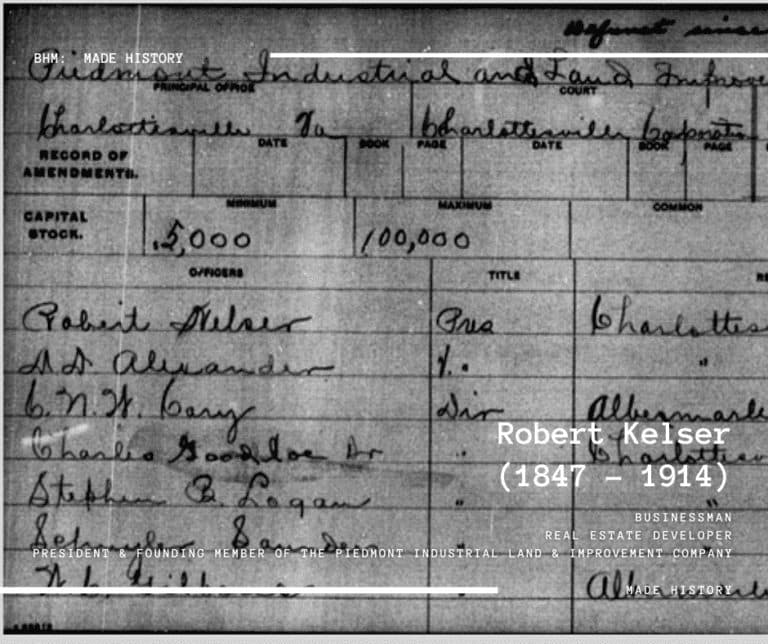 Defunct since
BHM: MADE HISTORY
Piedmont Industrial and Land Improve
PRINCIPAL OFFICE COURT
Charlottesville Va Charlottesville Corporation
RECORD OF AMENDMENTS. DATE BOOK PAGE DATE BOOK PAGE
CAPITAL STOCK. MINIMUM MAXIMUM COMMON
5,000 100,000
OFFICERS TITLE RE
Robert Kelser Pres Charlottes
Alexander V. "
C. N. W. Cary Dir Albermarle
Robert Kelser
Charles Goodloe Sr " Charlottesv
(1847 – 1914)
Stephen B. Logan " "
BUSINESSMAN
REAL ESTATE DEVELOPER
Schuyler Saunders "
PRESIDENT & FOUNDING MEMBER OF THE PIEDMONT INDUSTRIAL LAND & IMPROVEMENT COMPANY
Albermarle
MADE HISTORY